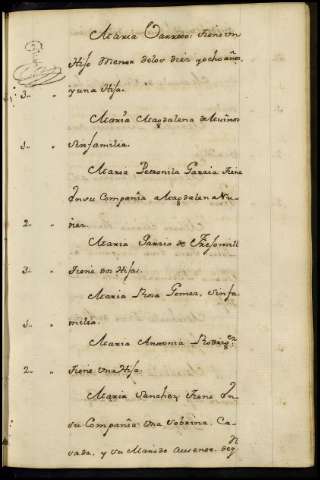 Maria Barrero, tiene un
Hijo Menor delos diez y ocho años,
3., „ y una Hija.
Maria Magdalena de Muños
1.. „ sin familia.
Maria Petronila Garcia tiene
En su Compañia a Magdalena Nu-
2.. „ ñez.
Maria Garcia de Fresomill
3.. „ tiene dos Hijas.
Maria Rosa Gomez, sin fa-
1.. „ milia.
Maria Antonia Rodrig.ez
2.. „ tiene una Hija.
Maria Sanchez tiene En
su Compañia una sobrina, Ca-
sada, y su Marido Ausente, de